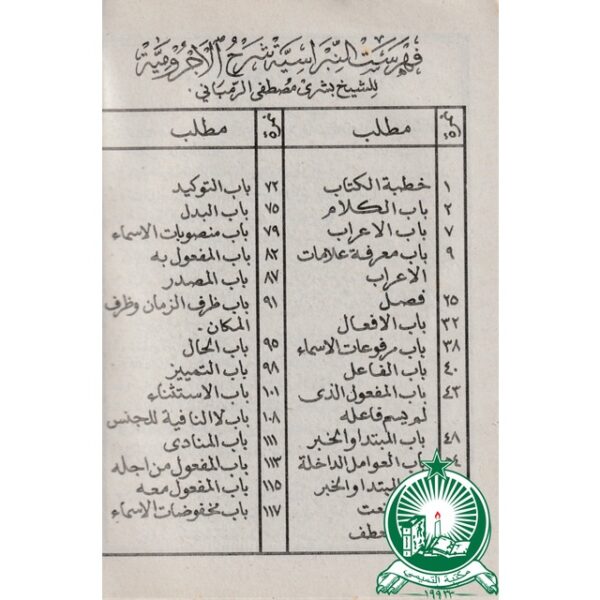 فهرست النبراسية شرح الآجرومية
للشيخ بشرى مصطفى الرمباني.
مطلب
١ خطبة الكتاب
٢ باب الكلام
٧ باب الاعراب
٩ باب معرفة علامات
الاعراب
٢٥ فصل
٣٢ باب الافعال
٣٨ باب مرفوعات الاسماء
٤٠ باب الفاعل
٤٣ باب المفعول الذى
لم يسم فاعله
٤٨ باب المبتدا والخبر
باب العوامل الداخلة
المبتدا والخبر
مطلب
٧٢ باب التوكيد
٧٥ باب البدل
٧٩ باب منصوبات الاسماء
٨٢ باب المفعول به
٨٧ باب المصدر
٩١ باب ظرف الزمان وظرف
المكان.
٩٥ باب الحال
٩٨ باب التمييز
١٠١ باب الاستثناء
١٠٨ باب لا النافية للجنس
١١١ باب المنادى
١١٣ باب المفعول من اجله
١١٥ باب المفعول معه
١١٧ باب مخفوضات الاسماء